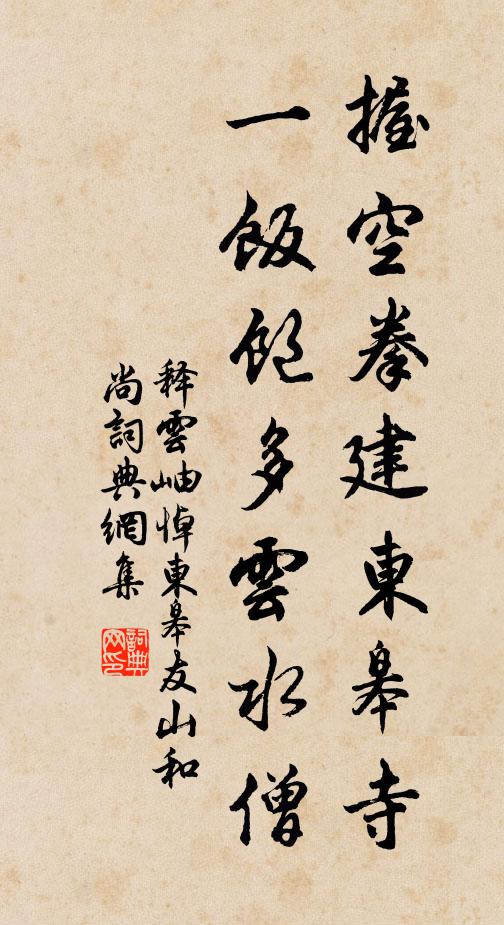 握空拳建東皋寺
一飯飽多雲水僧
释雲岫悼東皋友山和
尚詞典網集
詞典
网印